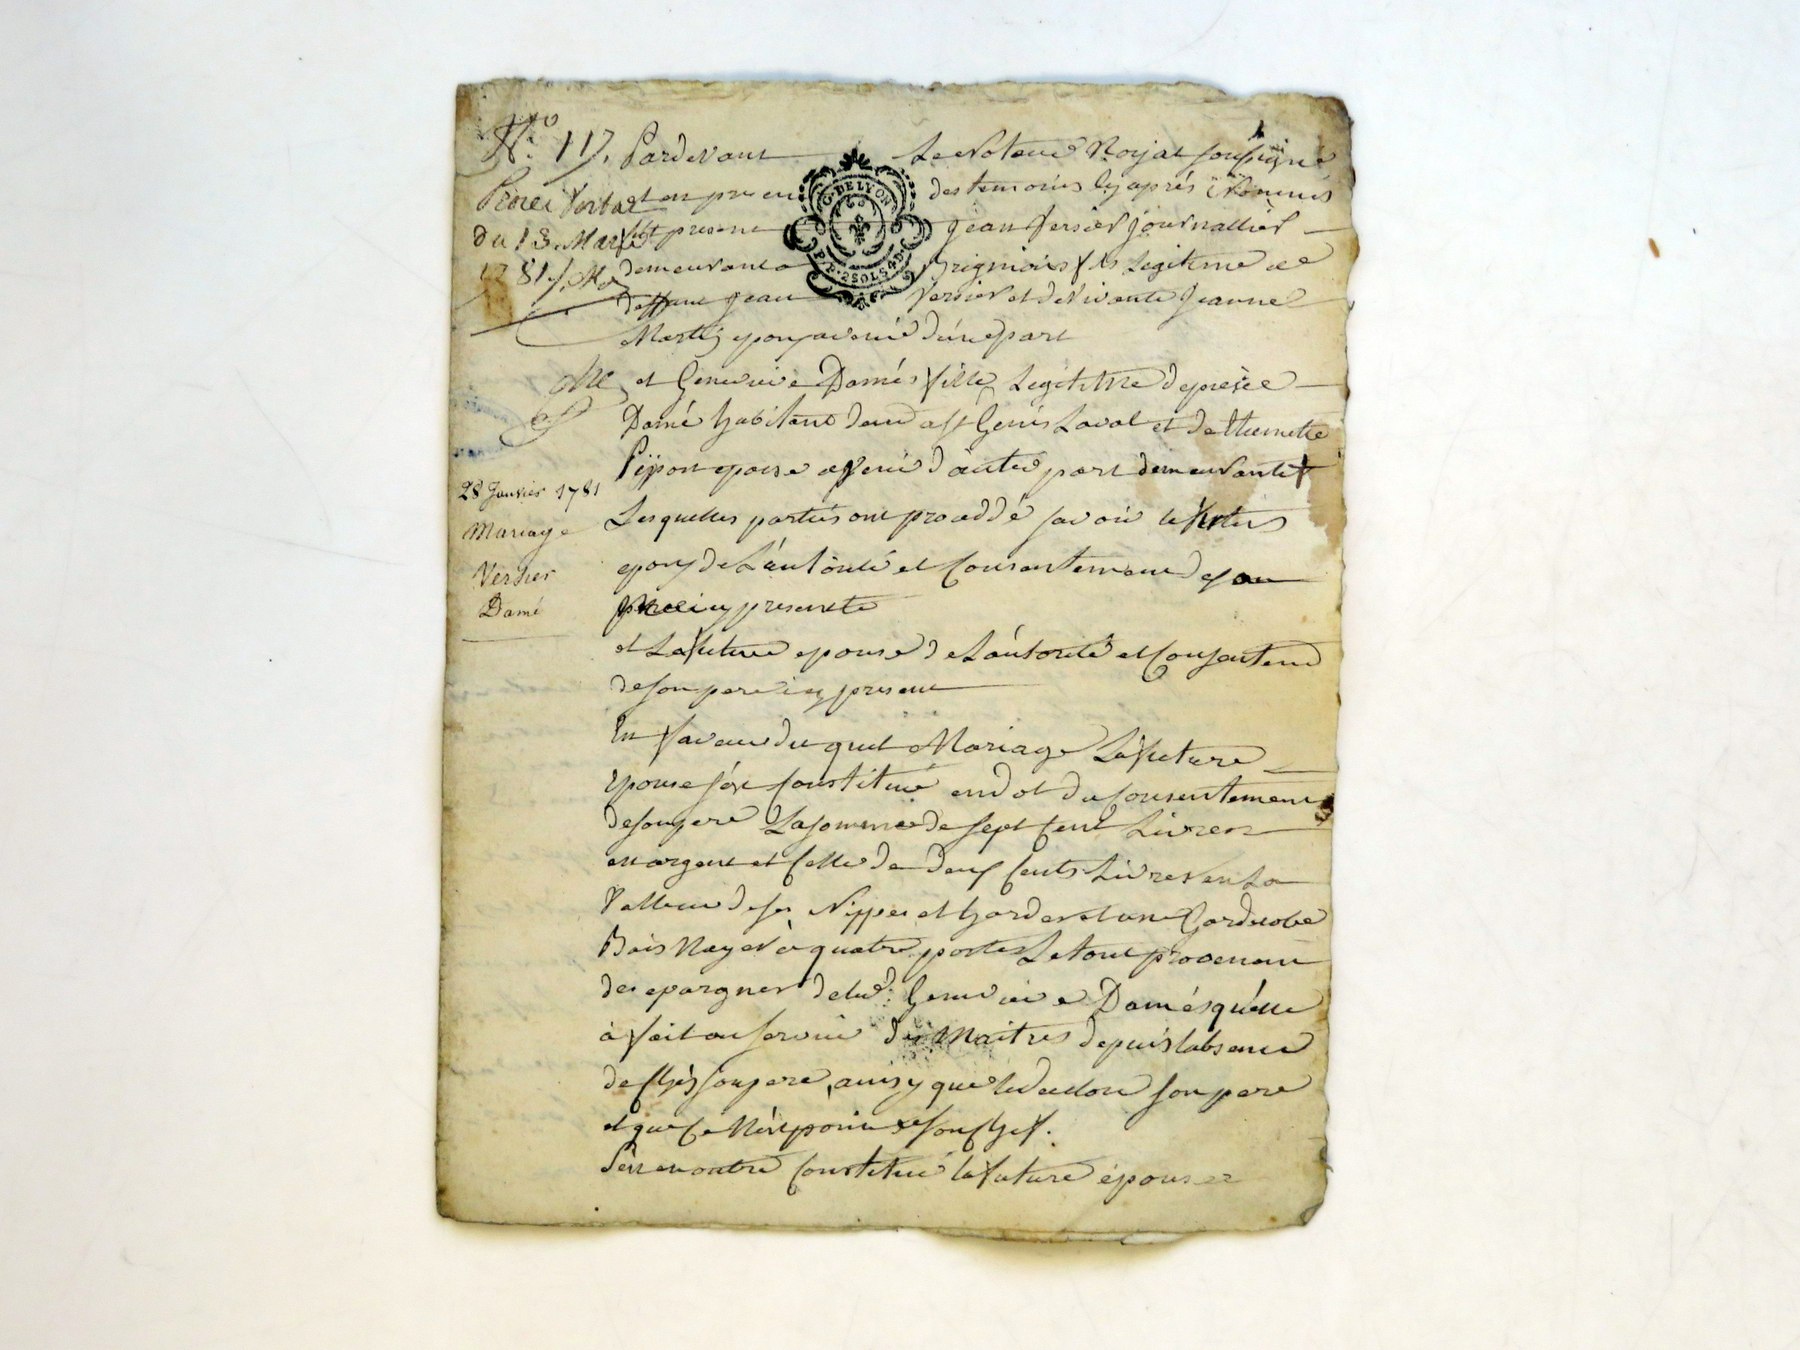 N.o 117. Pardevant Le Notaire Royal soussigné
et en presence des temoins cy après Nommés
du 13. Mars fut present Jean Versier journallier
1781 demeurant a Brignois fils Legitime de
deffunt Jean Versier et de Vivante Jeanne
époux avenir d'une part
G. DE LYON
P. P. 2 SOLS 4 D.
et Genevieve Damés fille Legitime de
Damé habitant Genis Laval et de
Pijson epouse avenir d'autre part demeurante
Lesquelles parties ont proceddé savoir le futur
28 Janvier 1781
Mariage
Versier
Damé
epoux de L'autorité et Consentement de sa
mere icy presente
et La future epouse de L'autorité et Consentem
de son pere icy present
En faveur du quel Mariage La future
Epouse s'est Constitué en dot du Consentement
de son pere La somme de sept Cent Livres
en argent et Celle de deux Cents Livres en La
Valleur de ses Nippes et hardes et une Garderobe
Bois Noyer à quatre portes Le tout provenant
des epargnes de lad: Genevieve Damés qu'elle
à fait au service des Maitres depuis l'absence
de chés son pere, ainsy que le declare son pere
et que Ce N'est point de son chef.
S'est en outre Constitué la future épouse